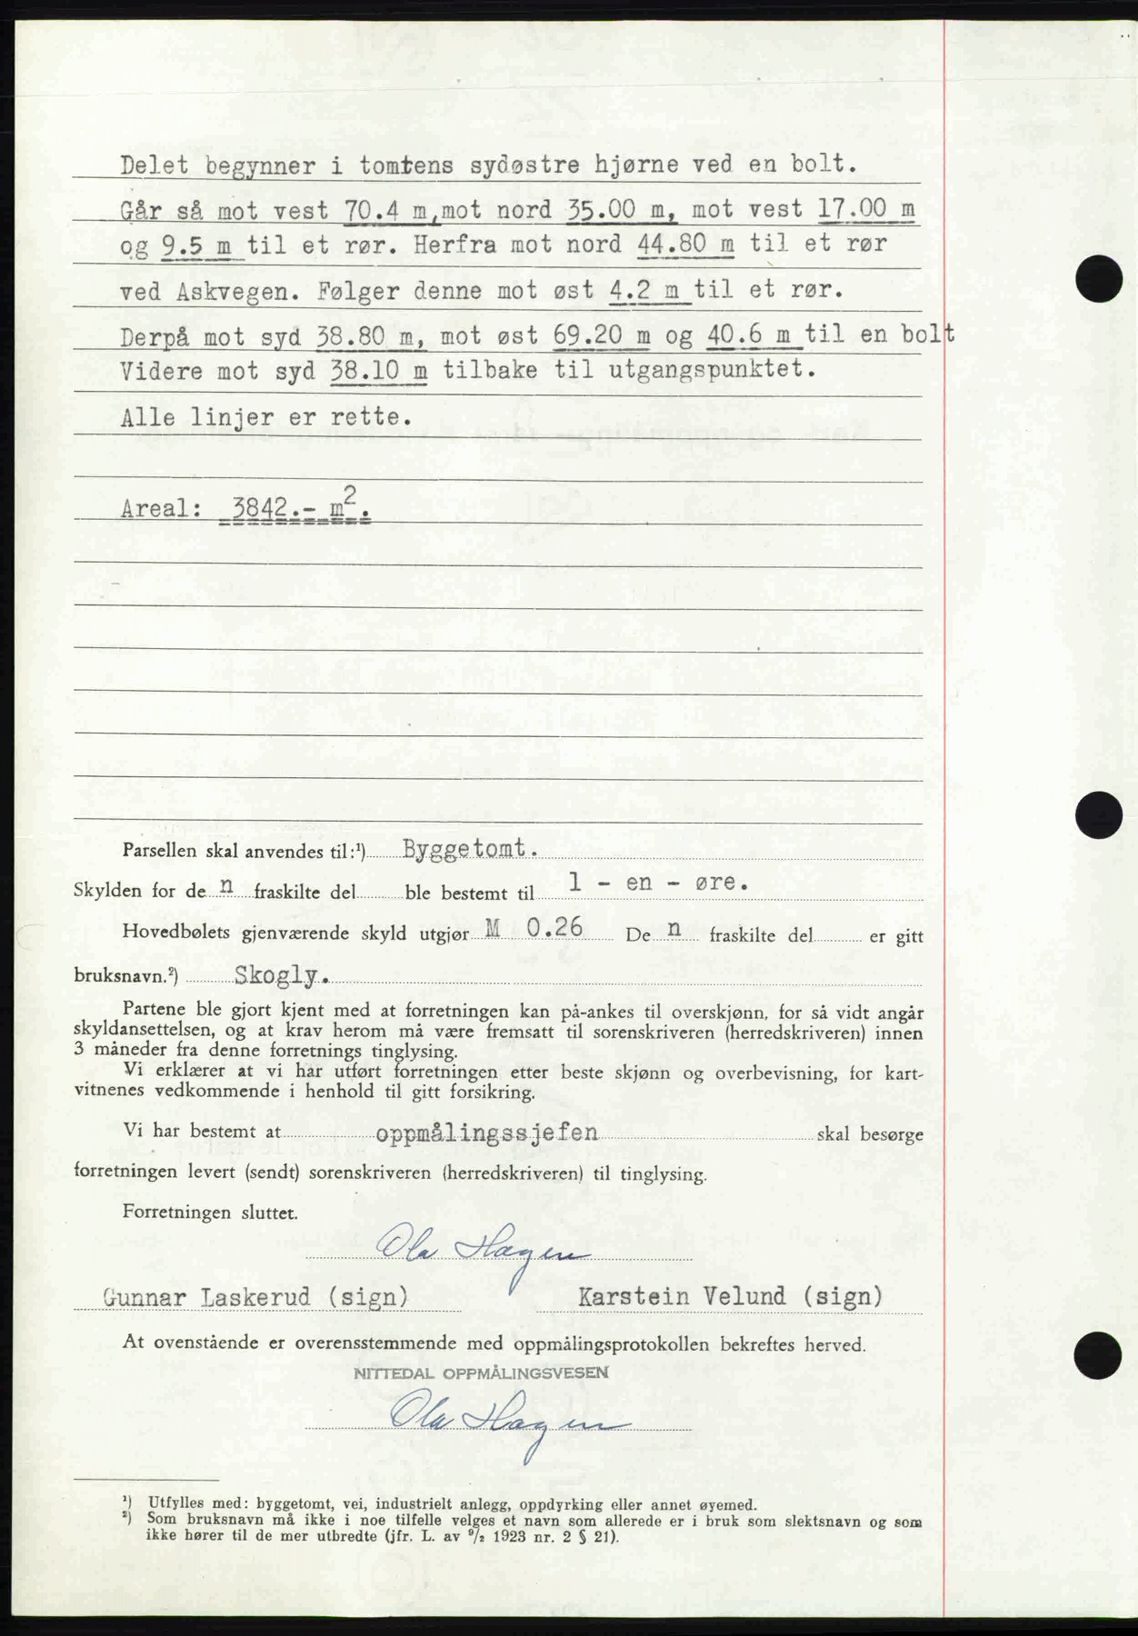 Delet begynner i tomtens sydøstre hjørne ved en bolt.
Går så mot vest 70.4 m,mot nord 35.00 m, mot vest 17.00 m
og 9.5 m til et rør. Herfra mot nord 44.80 m til et rør
ved Askvegen. Følger denne mot øst 4.2 m til et rør.
Derpå mot syd 38.80 m, mot øst 69.20 m og 40.6 m til en bolt
Videre mot syd 38.10 m tilbake til utgangspunktet.
Alle linjer er rette.
Areal: 3842.- m².
Parsellen skal anvendes til:¹) Byggetomt.
Skylden for de n fraskilte del ble bestemt til 1 - en - øre.
Hovedbølets gjenværende skyld utgjør M 0.26 De n fraskilte del er gitt
bruksnavn.²) Skogly.
Partene ble gjort kjent med at forretningen kan på-ankes til overskjønn, for så vidt angår
skyldansettelsen, og at krav herom må være fremsatt til sorenskriveren (herredskriveren) innen
3 måneder fra denne forretnings tinglysing.
Vi erklærer at vi har utført forretningen etter beste skjønn og overbevisning, for kart-
vitnenes vedkommende i henhold til gitt forsikring.
Vi har bestemt at oppmålingssjefen skal besørge
forretningen levert (sendt) sorenskriveren (herredskriveren) til tinglysing.
Forretningen sluttet.
Ola Hagen
Gunnar Laskerud (sign) Karstein Velund (sign)
At ovenstående er overensstemmende med oppmålingsprotokollen bekreftes herved.
NITTEDAL OPPMÅLINGSVESEN
Ola Hagen
¹) Utfylles med: byggetomt, vei, industrielt anlegg, oppdyrking eller annet øyemed.
²) Som bruksnavn må ikke i noe tilfelle velges et navn som allerede er i bruk som slektsnavn og som
ikke hører til de mer utbredte (jfr. L. av ⁹/₂ 1923 nr. 2 § 21).